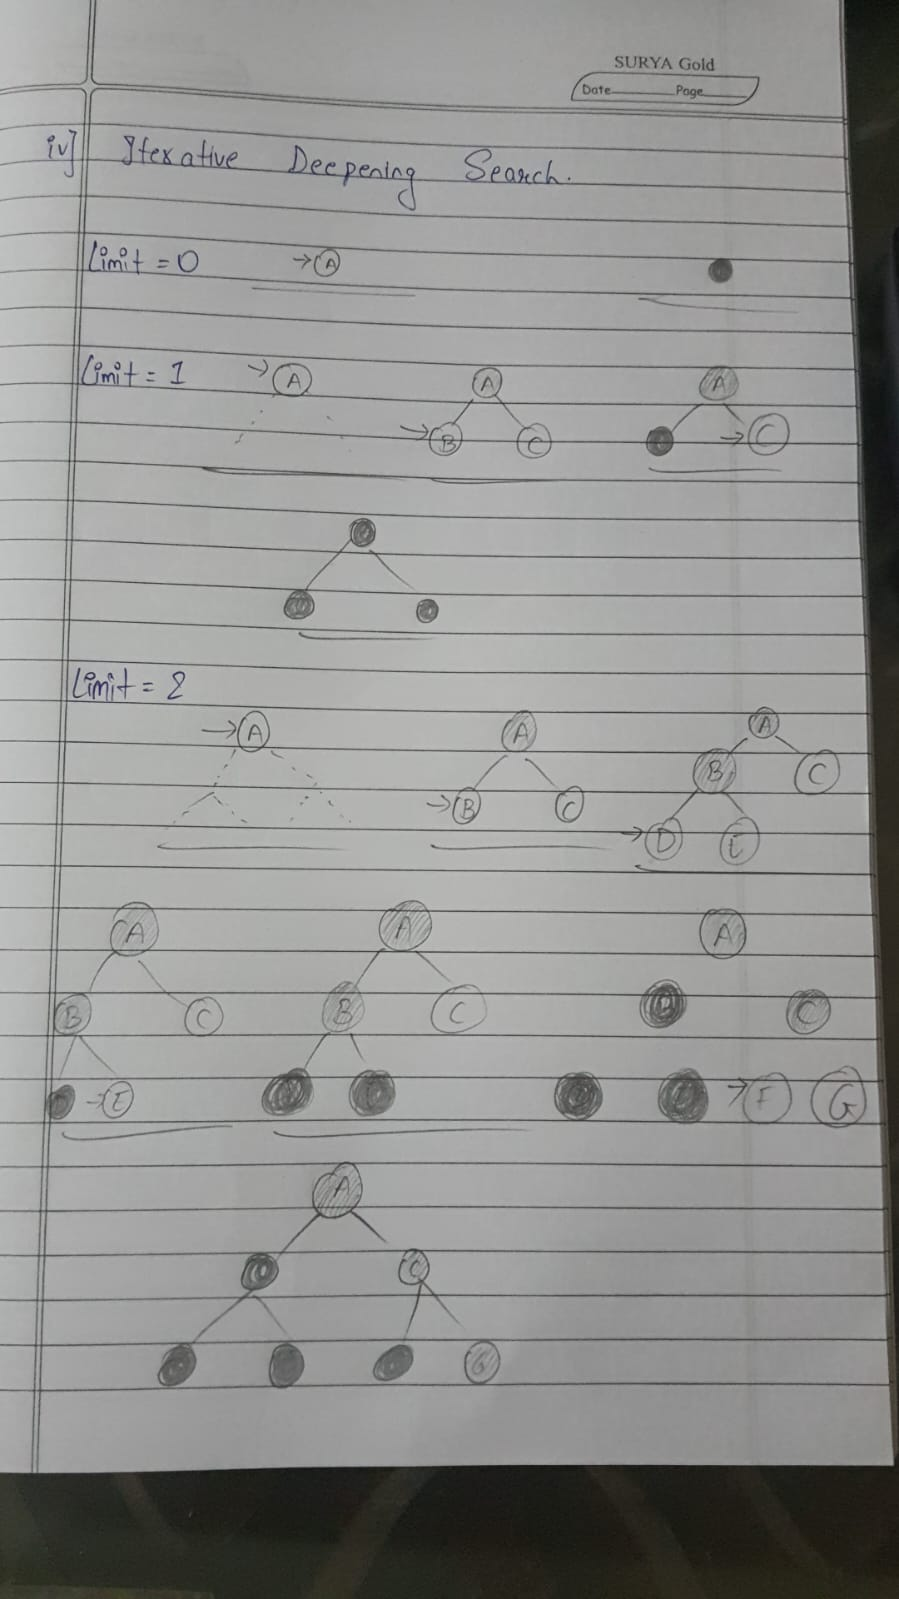 SURYA Gold
Date Page
iv] Iterative Deepening Search.
Limit = 0 → A
Limit = 1 → A A A
→ B C → C
Limit = 2
→ A A A
→ B C B C
→ D E
A A A
B C B C B C
→ E → F G
A
C
G